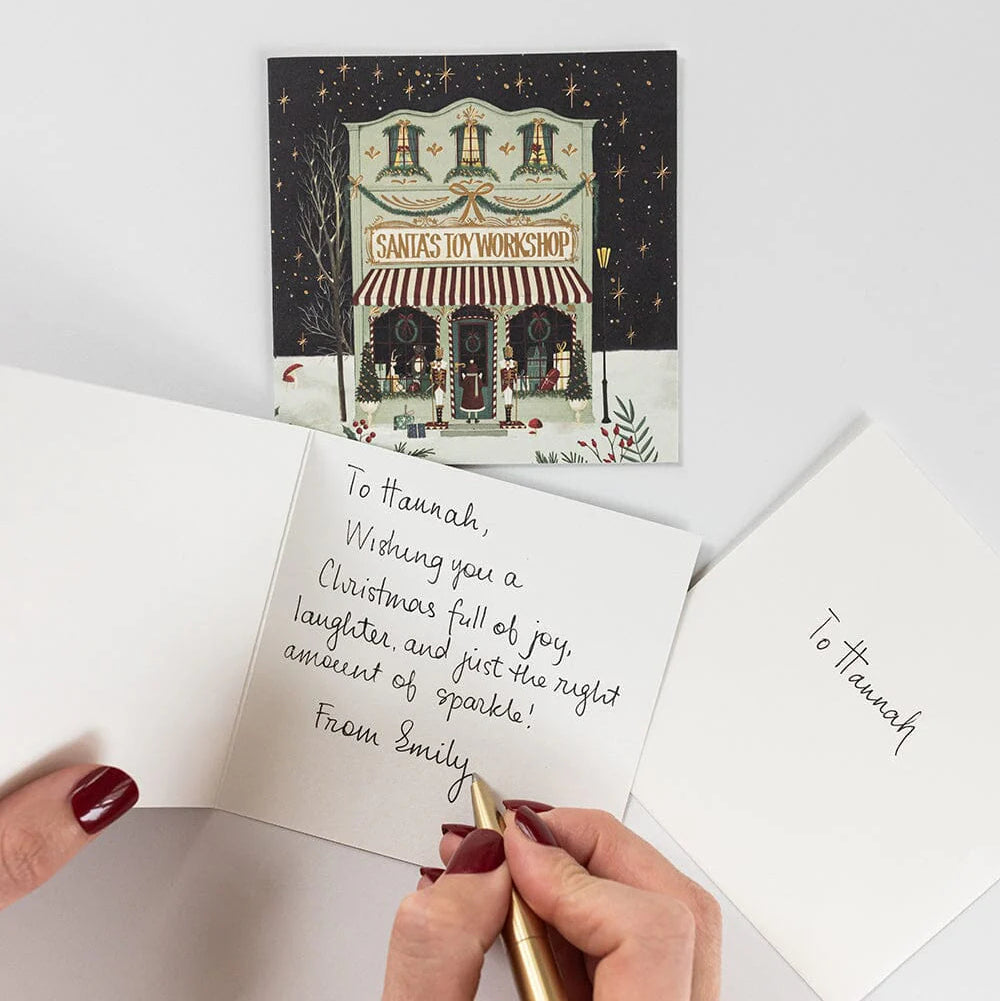 SANTA'S TOY WORKSHOP
To Hannah,
Wishing you a
Christmas full of joy,
laughter, and just the right
amount of sparkle!
From Emily
To Hannah